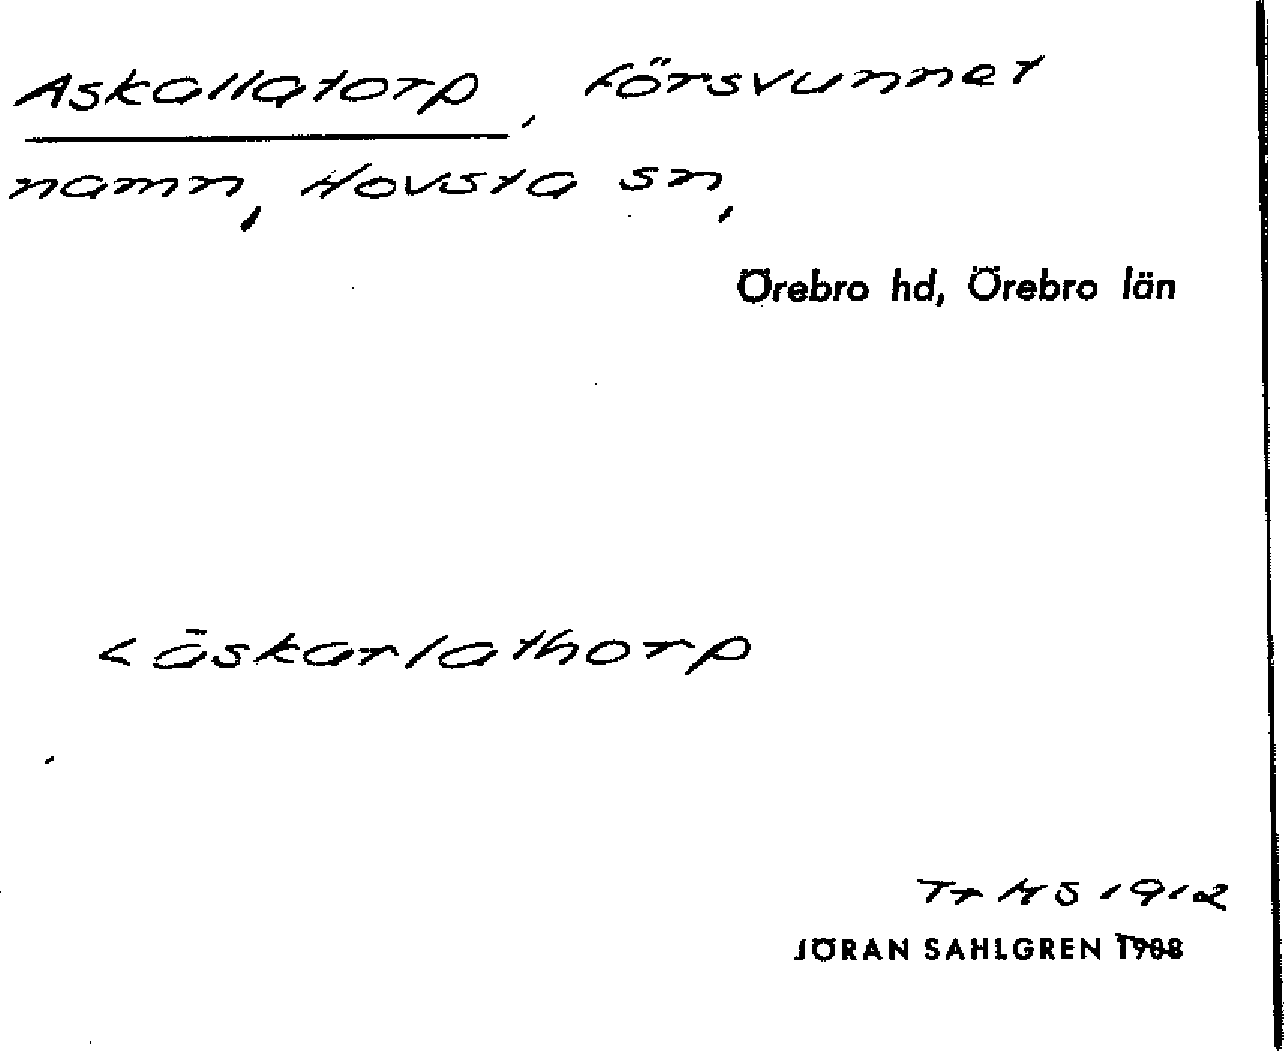 Askallatorp, försvunnet
namn, Hovsta sn,
Örebro hd, Örebro län
< āskarlathorp
Tr HS 1912
JÖRAN SAHLGREN 1908